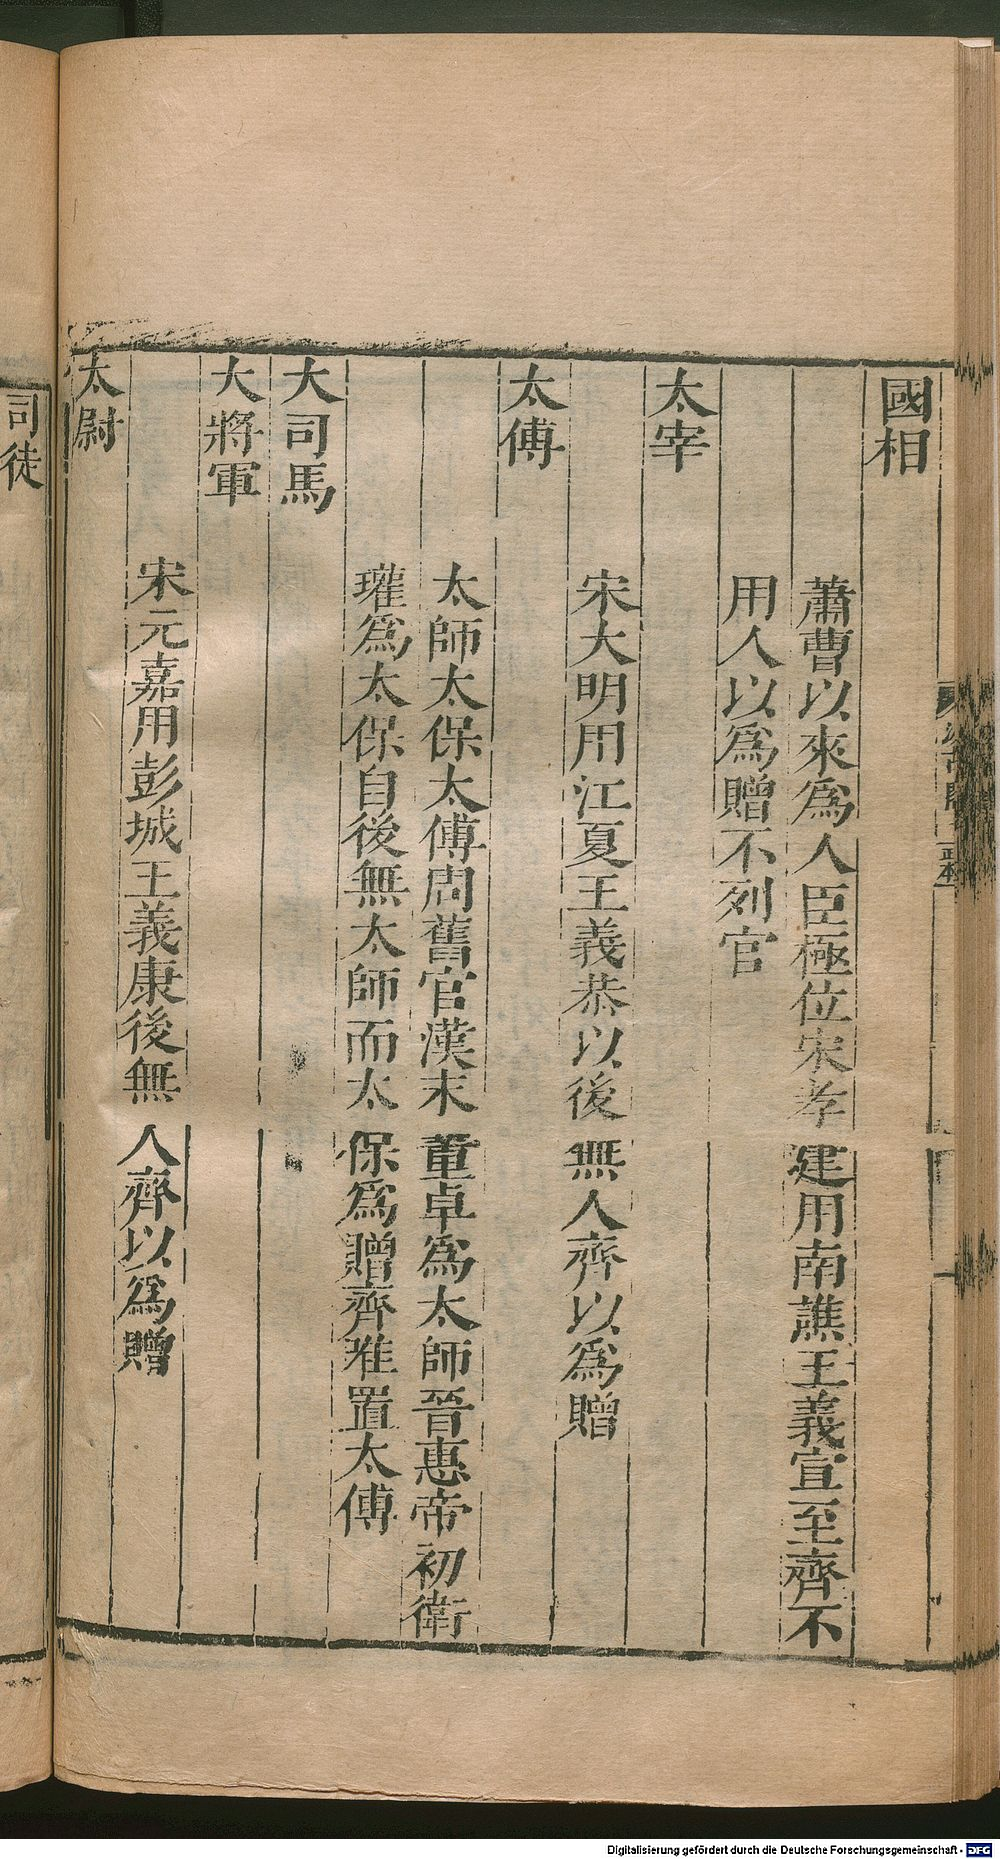 國相
蕭曹以來爲人臣極位宋孝建用南譙王義宣至齊不
用人以爲贈不列官
太宰
宋大明用江夏王義恭以後無人齊以爲贈
太傅
太師太保太傅周舊官漢末董卓爲太師晉惠帝初衛
瓘爲太保自後無太師而太保爲贈齊唯置太傅
大司馬
大將軍
宋元嘉用彭城王義康後無人齊以爲贈
太尉
司徒
Digitalisierung gefördert durch die Deutsche Forschungsgemeinschaft - DFG